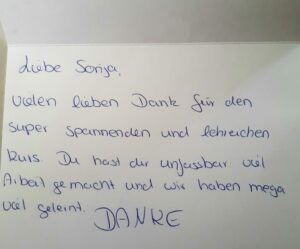 Liebe Sonja,
vielen lieben Dank für den
super spannenden und lehreichen
Kurs. Du hast dir unfassbar viel
Arbeit gemacht und wir haben mega
viel gelernt. DANKE